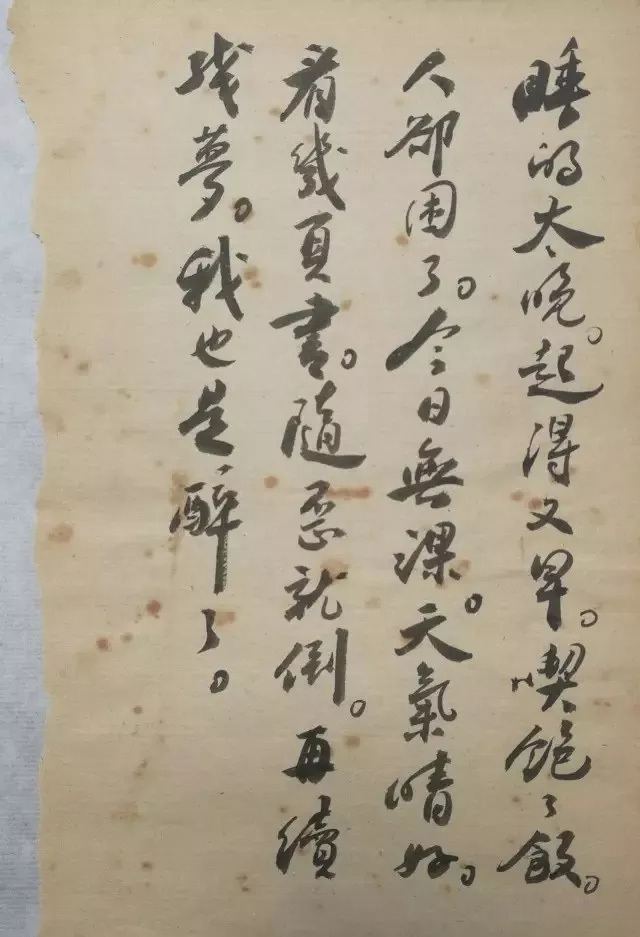 睡的太晚。起得又早。喫飽了飯。
人卻困了。今日無課。天氣晴好。
看幾頁書。隨歪就倒。再續
殘夢。我也是醉了。